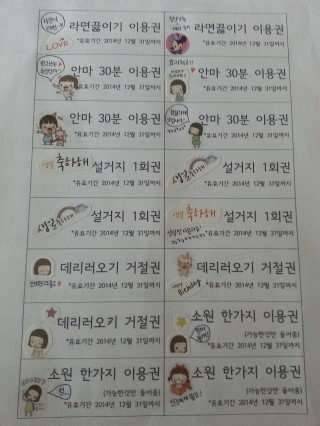 라면끓이기 이용권
*유효기간 2014년 12월 31일까지
LOVE
라면끓이기 이용권
*유효기간 2014년 12월 31일까지
안마 30분 이용권
*유효기간 2014년 12월 31일까지
안마 30분 이용권
*유효기간 2014년 12월 31일까지
안마 30분 이용권
*유효기간 2014년 12월 31일까지
안마 30분 이용권
*유효기간 2014년 12월 31일까지
축하해
설거지 1회권
*유효기간 2014년 12월 31일까지
설거지 1회권
*유효기간 2014년 12월 31일까지
설거지 1회권
*유효기간 2014년 12월 31일까지
축하해
설거지 1회권
*유효기간 2014년 12월 31일까지
데리러오기 거절권
*유효기간 2014년 12월 31일까지
데리러오기 거절권
*유효기간 2014년 12월 31일까지
Birthday
데리러오기 거절권
*유효기간 2014년 12월 31일까지
소원 한가지 이용권
(가능한것만 들어줌)
*유효기간 2014년 12월 31일까지
소원 한가지 이용권
(가능한것만 들어줌)
*유효기간 2014년 12월 31일까지
소원 한가지 이용권
(가능한것만 들어줌)
*유효기간 2014년 12월 31일까지